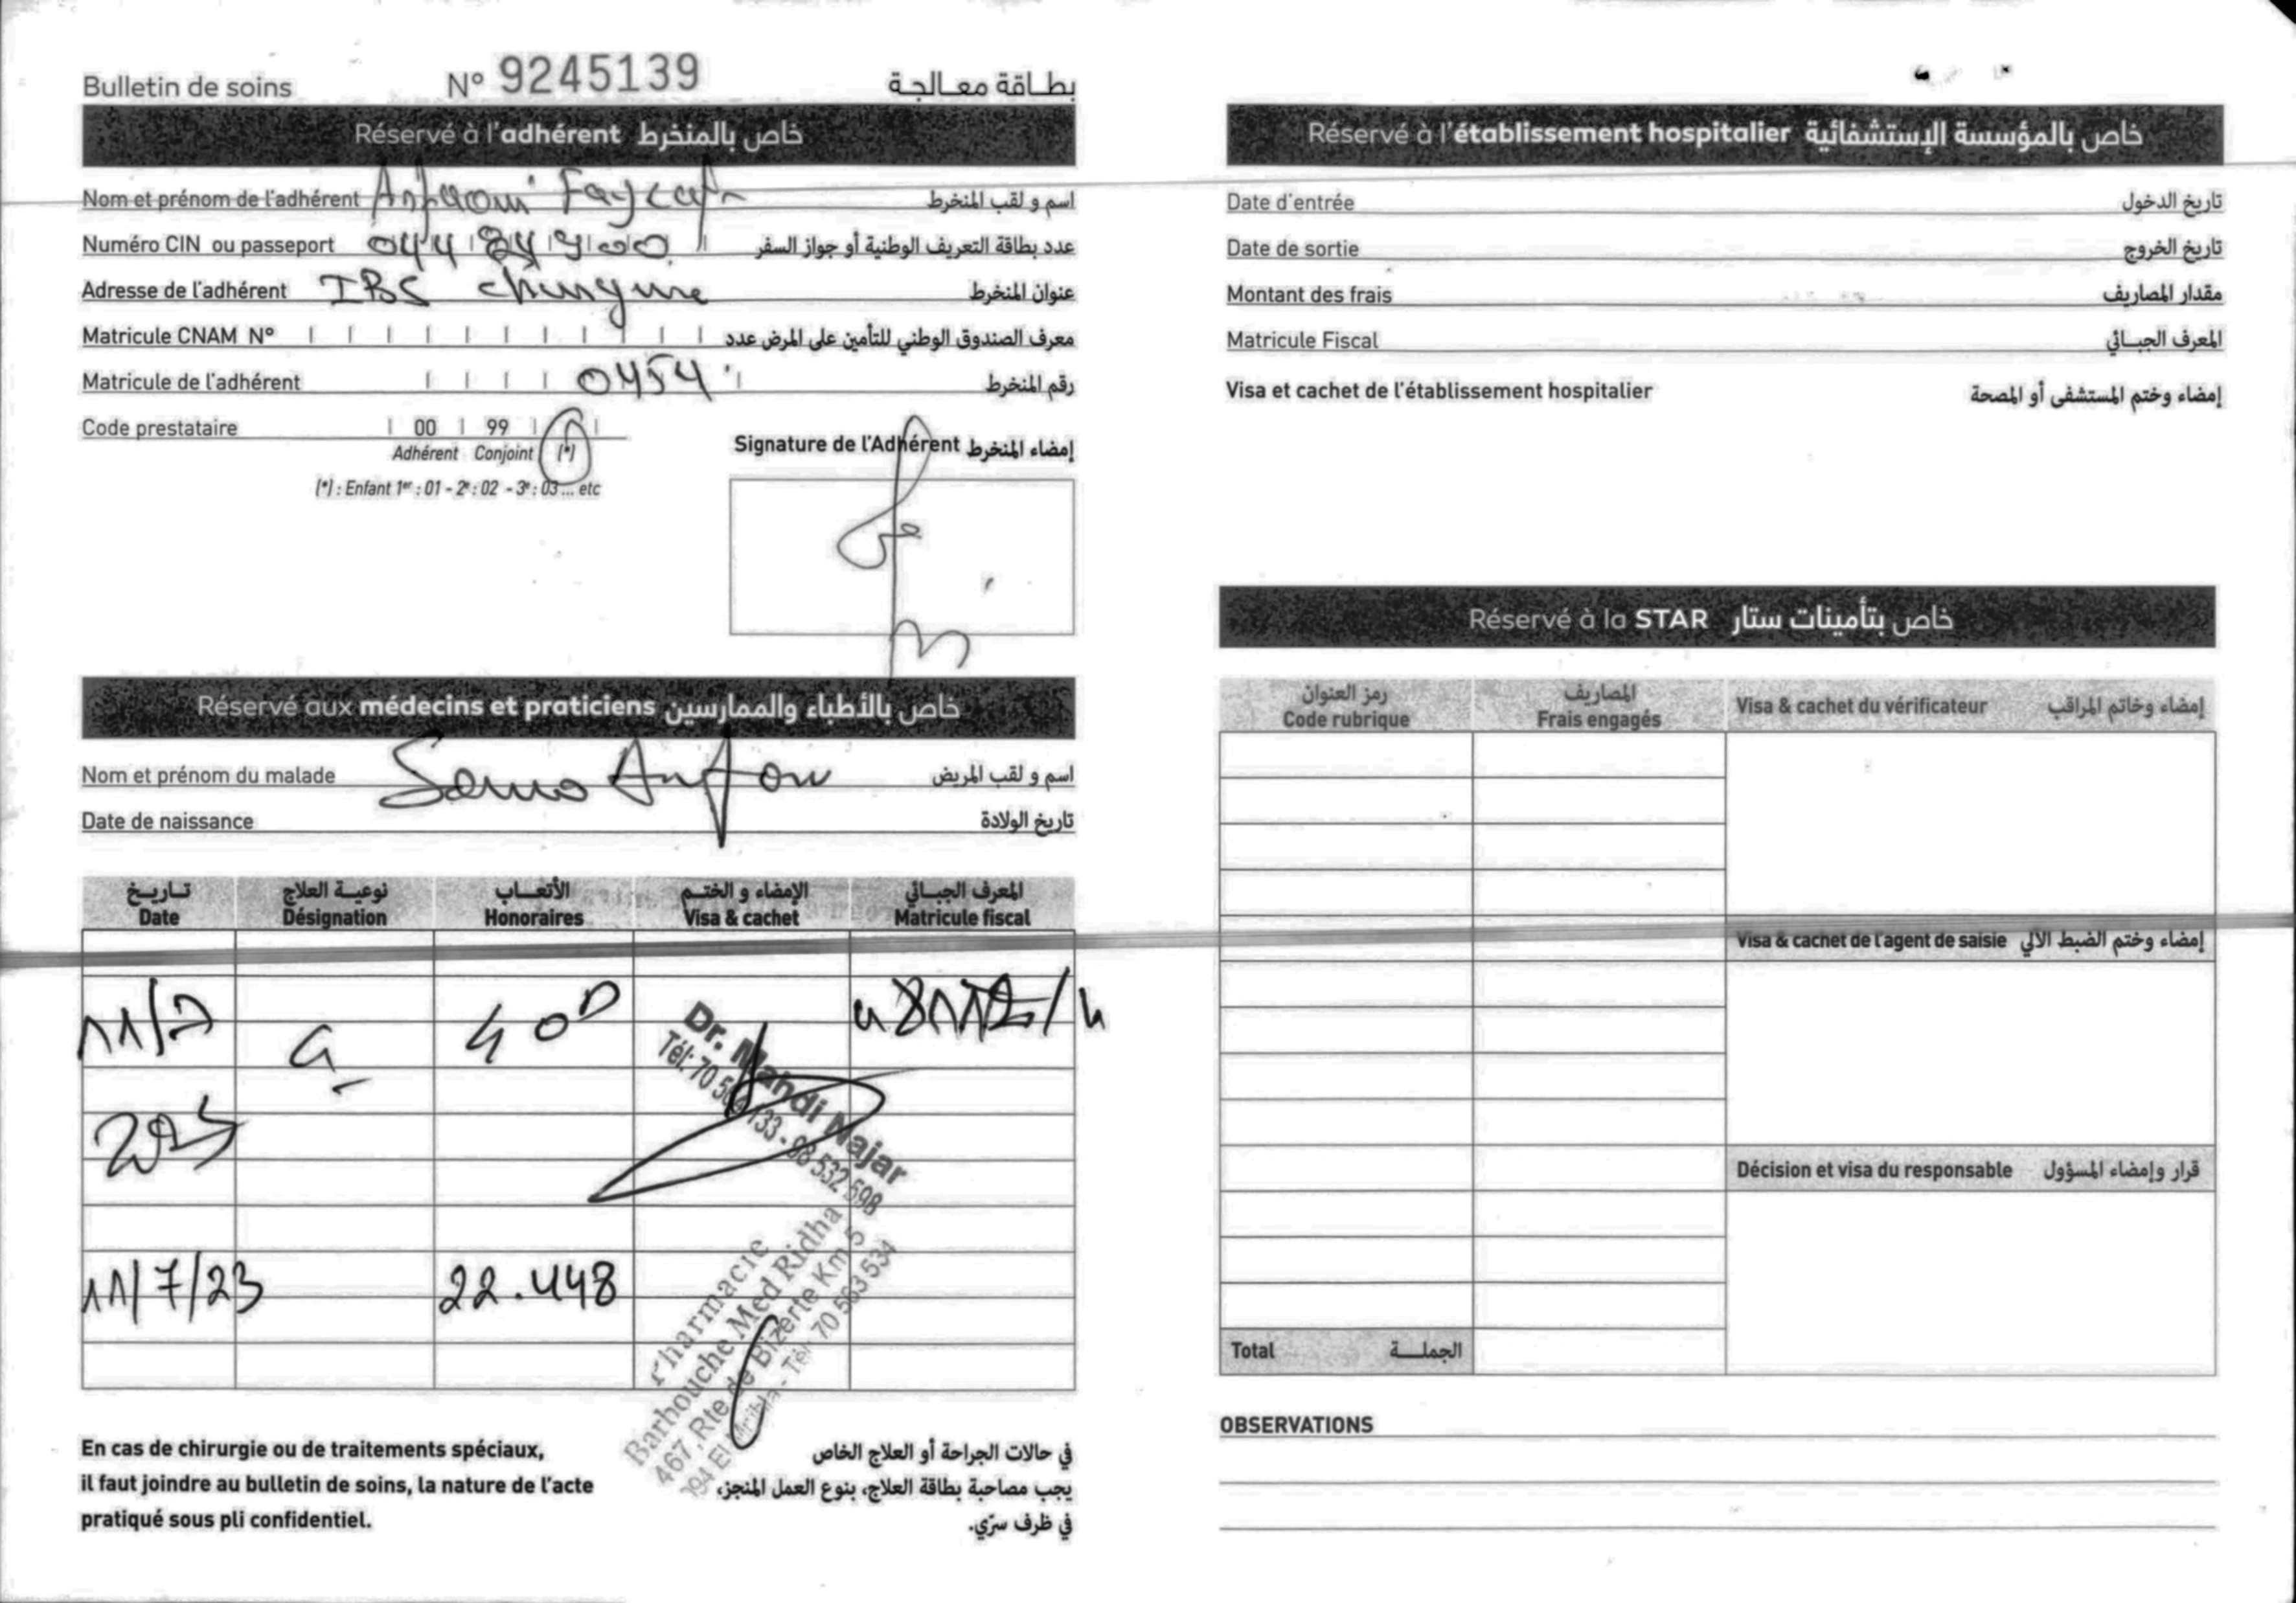 Bulletin de soins N° 9245139 بطاقة معالجة
Réservé à l'adhérent خاص بالمنخرط
Nom et prénom de l'adhérent Faycal اسم و لقب المنخرط
Numéro CIN ou passeport عدد بطاقة التعريف الوطنية أو جواز السفر
Adresse de l'adhérent IBS عنوان المنخرط
Matricule CNAM N° معرف الصندوق الوطني للتأمين على المرض عدد
Matricule de l'adhérent 0454 رقم المنخرط
Code prestataire 00 99
Adhérent Conjoint (*)
(*) : Enfant 1er : 01 - 2e : 02 - 3e : 03 ... etc
Signature de l'Adhérent إمضاء المنخرط
Réservé aux médecins et praticiens خاص بالأطباء والممارسين
Nom et prénom du malade اسم و لقب المريض
Date de naissance تاريخ الولادة
تاريخ نوعية العلاج الأتعاب الإمضاء و الختم المعرف الجبائي
Date Désignation Honoraires Visa & cachet Matricule fiscal
11/7 40D
Dr. Mahdi Najar
Tél: 70 564 133 - 98 532 598
11/7/23 22.448
Pharmacie
Barhouche Med Ridha
467, Rte de Bizerte Km 5
El Mnihla - Tél 70 563 534
En cas de chirurgie ou de traitements spéciaux,
il faut joindre au bulletin de soins, la nature de l'acte
pratiqué sous pli confidentiel.
في حالات الجراحة أو العلاج الخاص
يجب مصاحبة بطاقة العلاج، بنوع العمل المنجز،
في ظرف سرّي.
Réservé à l'établissement hospitalier خاص بالمؤسسة الإستشفائية
Date d'entrée تاريخ الدخول
Date de sortie تاريخ الخروج
Montant des frais مقدار المصاريف
Matricule Fiscal المعرف الجبائي
Visa et cachet de l'établissement hospitalier إمضاء وختم المستشفى أو المصحة
Réservé à la STAR خاص بتأمينات ستار
رمز العنوان المصاريف
Code rubrique Frais engagés Visa & cachet du vérificateur إمضاء وخاتم المراقب
Visa & cachet de l'agent de saisie إمضاء وختم الضبط الآلي
Décision et visa du responsable قرار وإمضاء المسؤول
Total الجملة
OBSERVATIONS